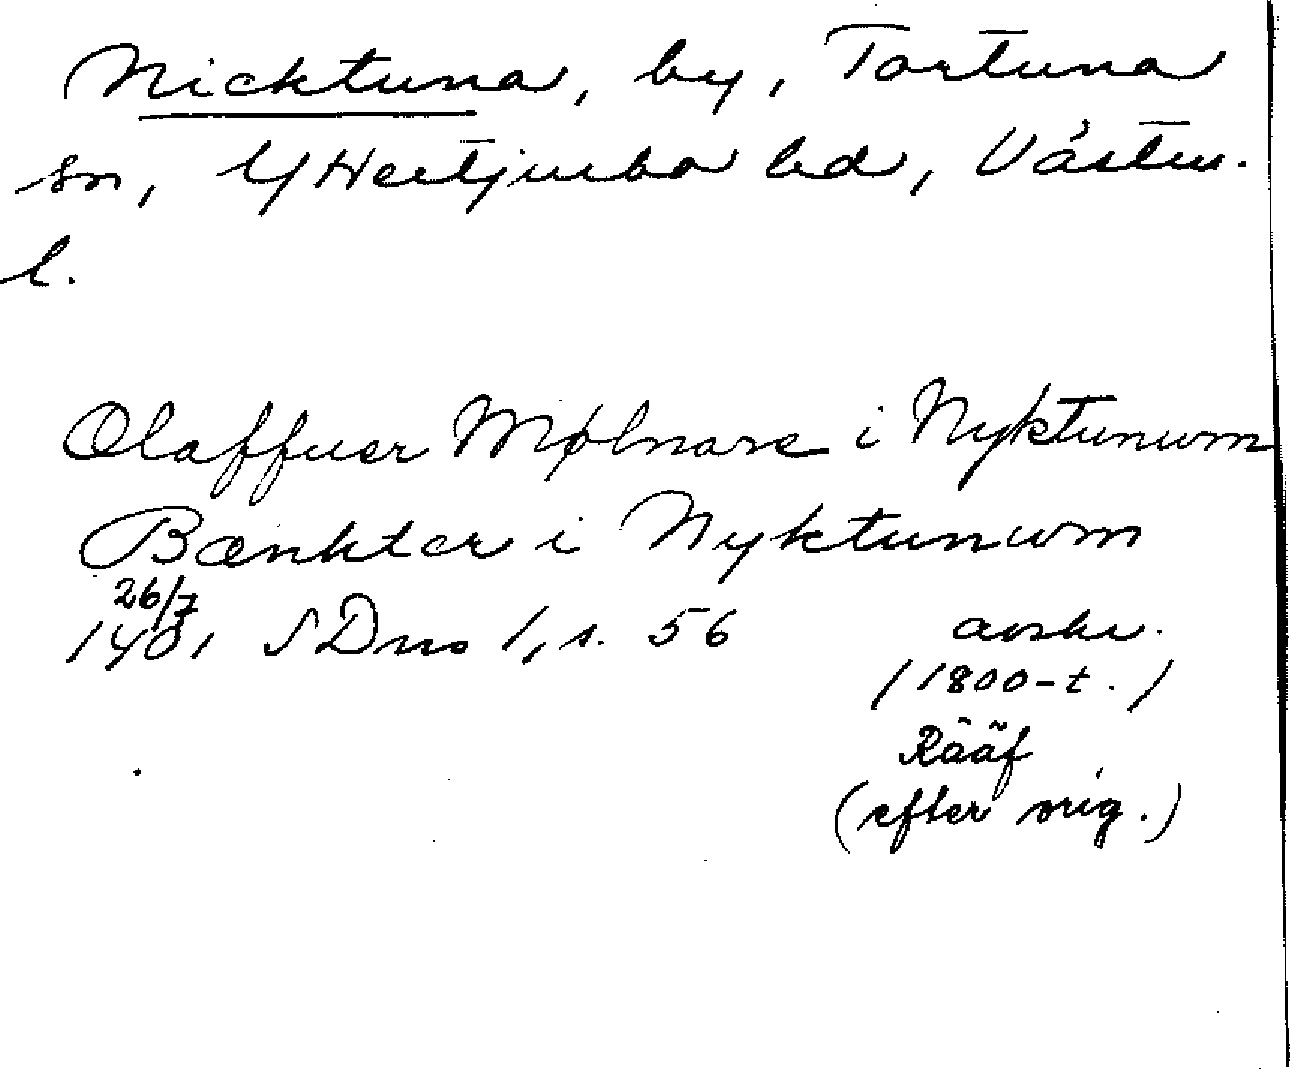 Nicktuna, by, Tortuna
sn, Yttertjurbo hd, Västm.
l.
Olaffuer Mølnare i Nyktunum
Bænkter i Nyktunum
26/7
1401 SDns 1, s. 56 avskr.
(1800-t.)
Rääf
(efter orig.)